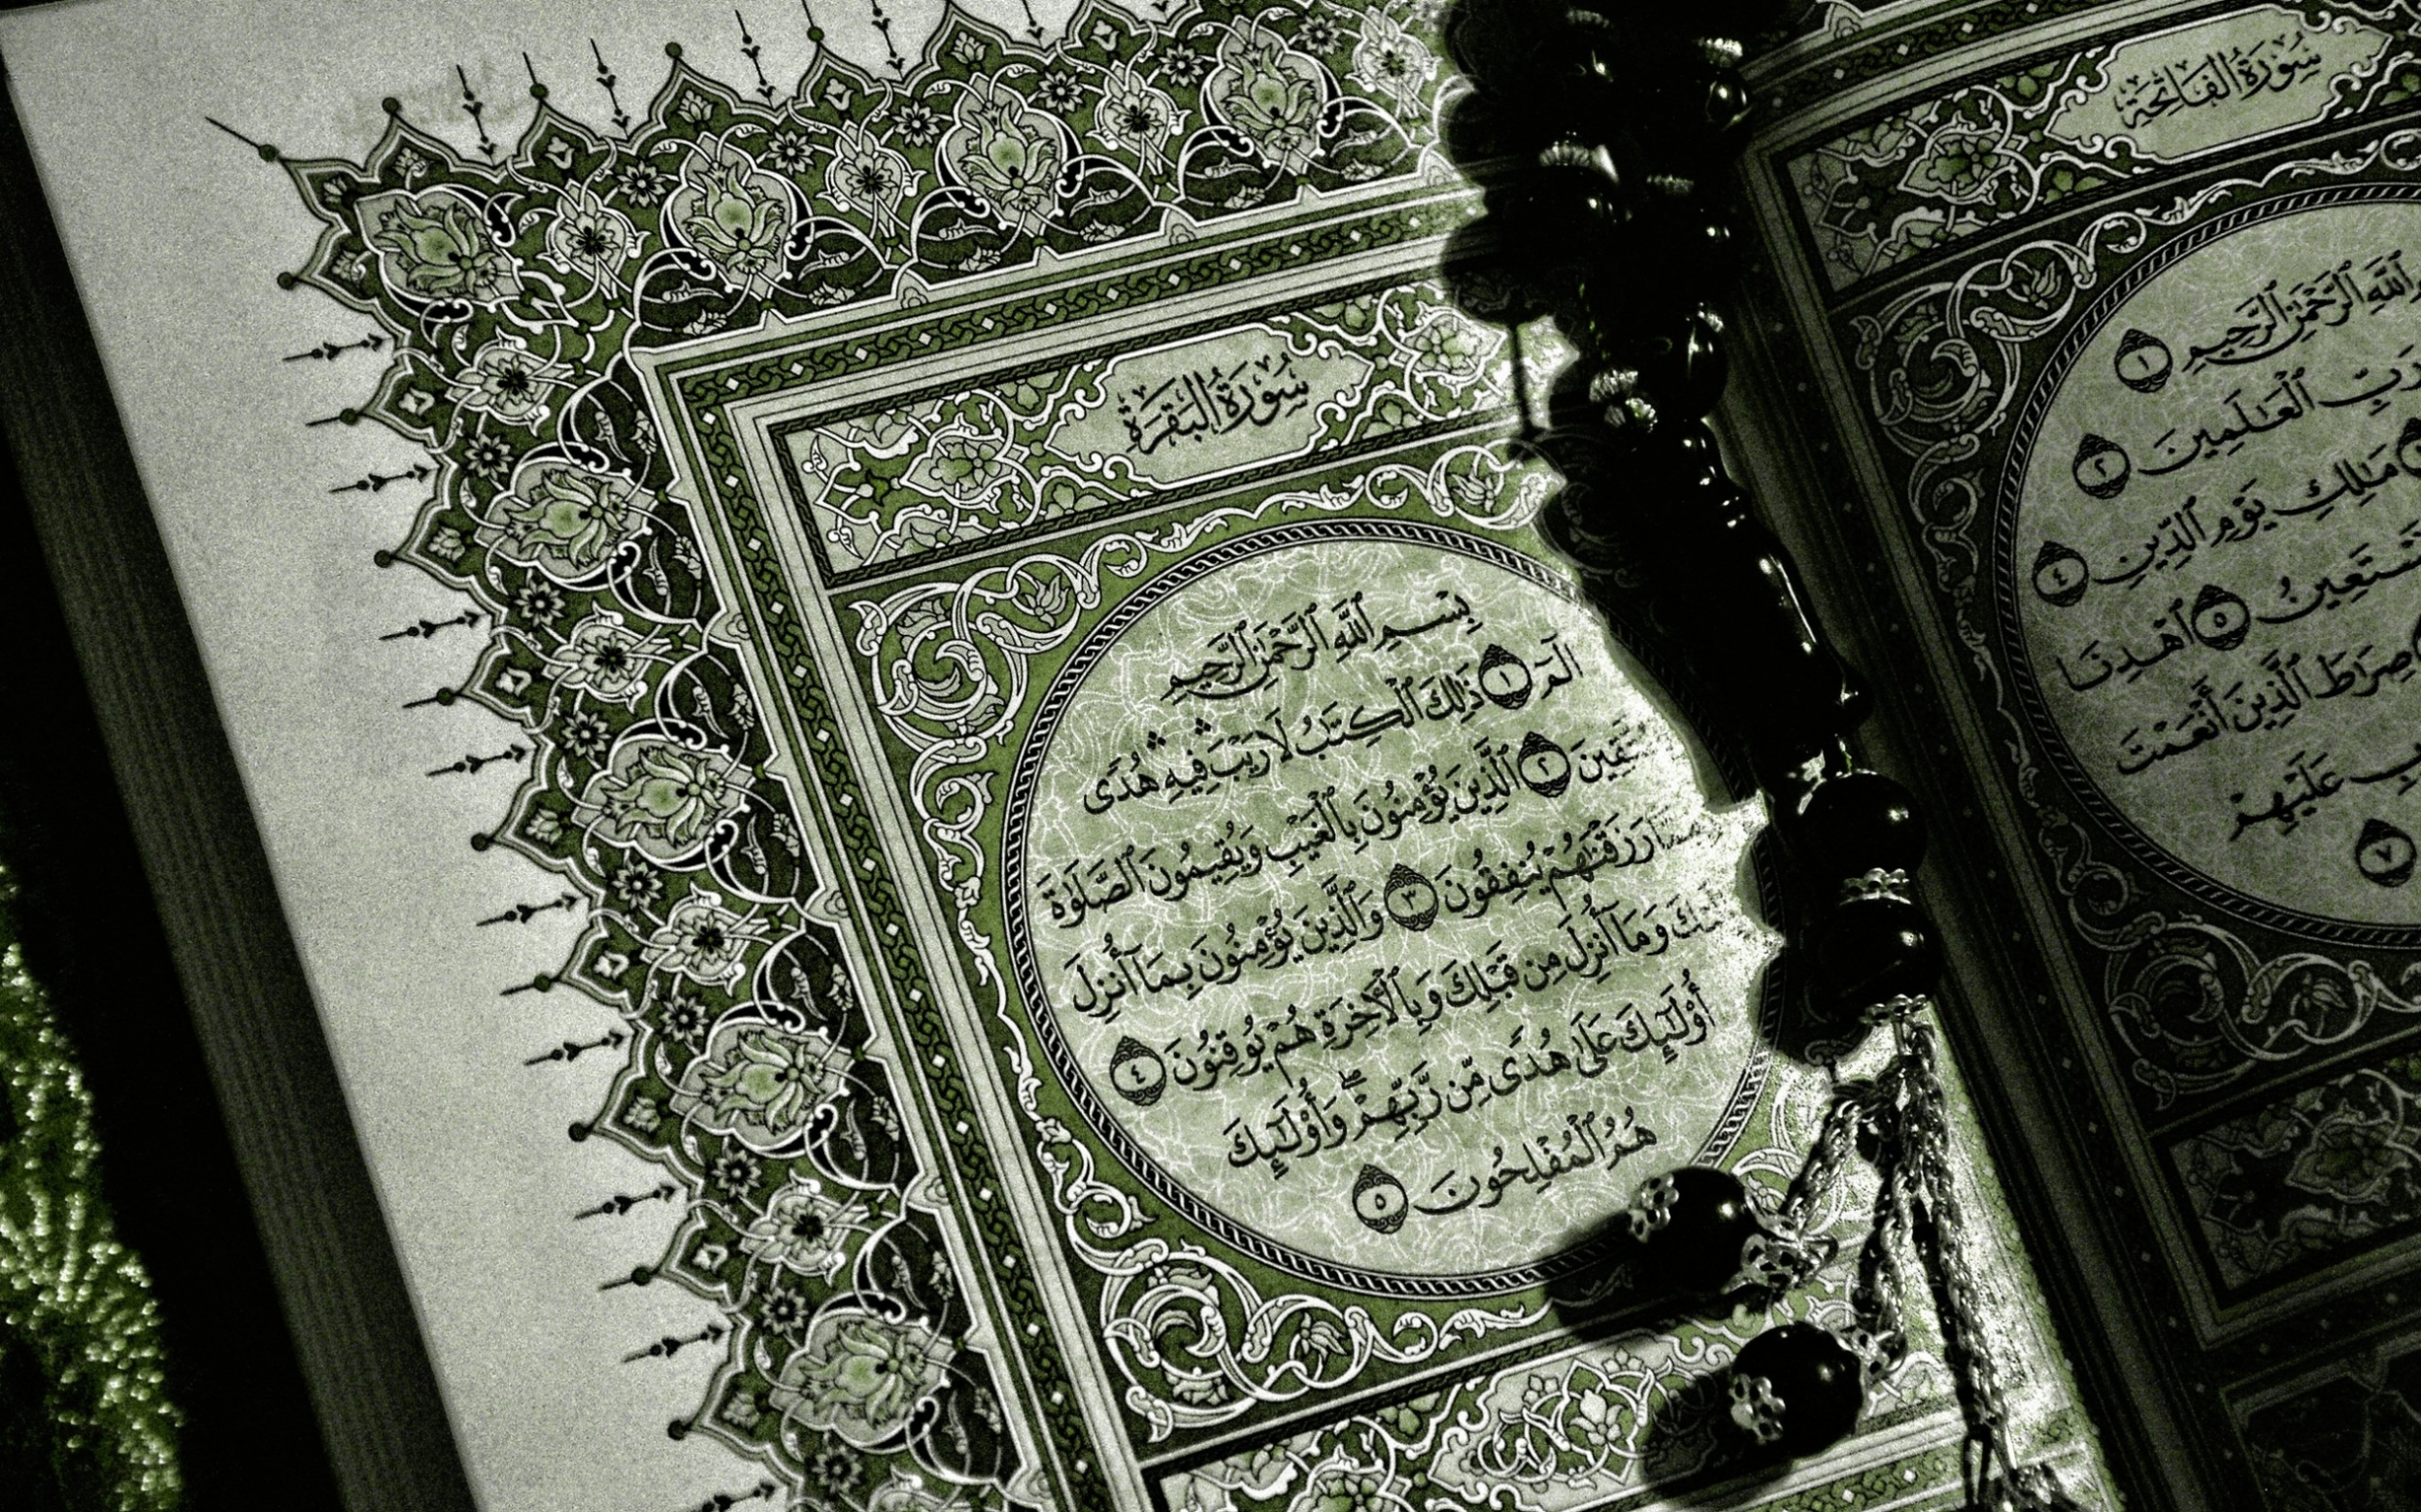 سُورَةُ الفَاتِحَةِ
ٱللَّهِ ٱلرَّحْمَٰنِ ٱلرَّحِيمِ ١
رَبِّ ٱلْعَٰلَمِينَ ٢
مَٰلِكِ يَوْمِ ٱلدِّينِ ٤
نَسْتَعِينُ ٥ ٱهْدِنَا
صِرَٰطَ ٱلَّذِينَ أَنْعَمْتَ
عَلَيْهِمْ
٧
سُورَةُ البَقَرَةِ
بِسْمِ ٱللَّهِ ٱلرَّحْمَٰنِ ٱلرَّحِيمِ
الٓمٓ ١ ذَٰلِكَ ٱلْكِتَٰبُ لَا رَيْبَ ۛ فِيهِ ۛ هُدًى
ٱلَّذِينَ يُؤْمِنُونَ بِٱلْغَيْبِ وَيُقِيمُونَ ٱلصَّلَوٰةَ
رَزَقْنَٰهُمْ يُنفِقُونَ ٣ وَٱلَّذِينَ يُؤْمِنُونَ بِمَآ أُنزِلَ
وَمَآ أُنزِلَ مِن قَبْلِكَ وَبِٱلْءَاخِرَةِ هُمْ يُوقِنُونَ ٤
أُو۟لَٰٓئِكَ عَلَىٰ هُدًى مِّن رَّبِّهِمْ ۖ وَأُو۟لَٰٓئِكَ
هُمُ ٱلْمُفْلِحُونَ ٥